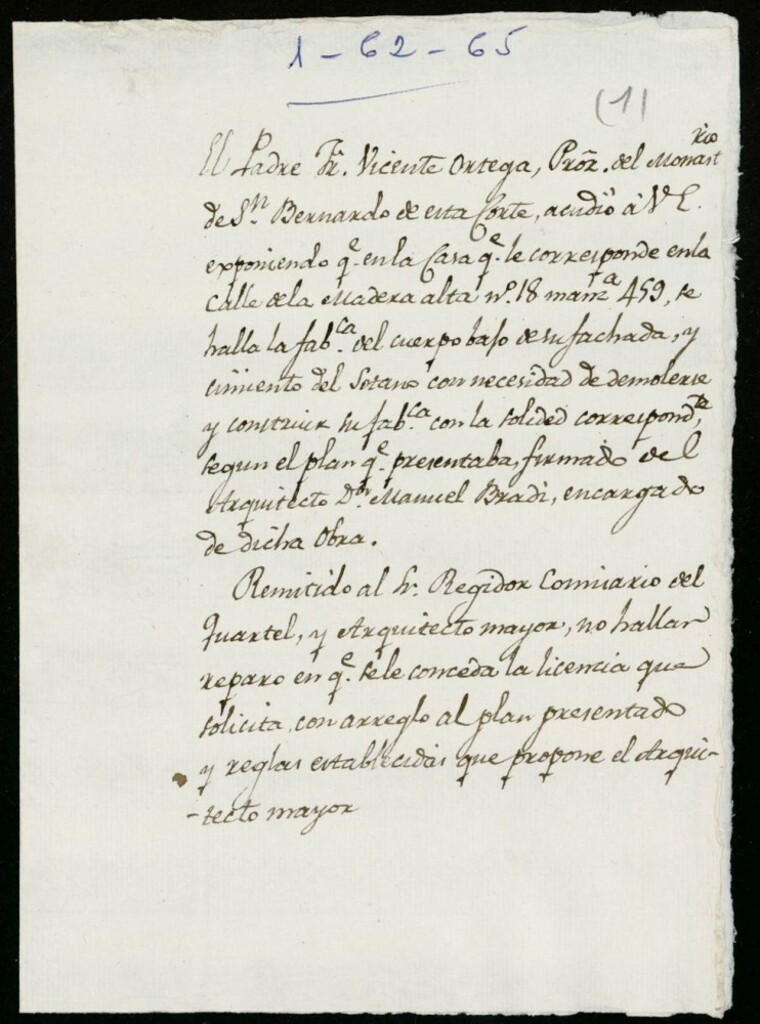 1-62-65
(1)
El Padre Fr. Vicente Ortega, Prõr. del Monastrio
de Sn. Bernardo de esta Corte, acudió á V.E.
exponiendo qe. en la Casa qe. le corresponde en la
Calle de la Madera alta nº. 18 manza 459, se
halla la fabca. del cuerpo bajo de su fachada, y
cimiento del Sotano con necesidad de demolerse
y construir su fabca. con la solided correspondte,
segun el plan qe. presentaba, firmado del
Arquitecto Dn. Manuel Bradi, encargado
de dicha Obra.
Remitido al Sr. Regidor Comisario del
Quartel, y Arquitecto mayor, no hallan
reparo en qe. se le conceda la licencia que
solicita, con arreglo al plan presentado
y reglas establecidas que propone el Arqui-
-tecto mayor